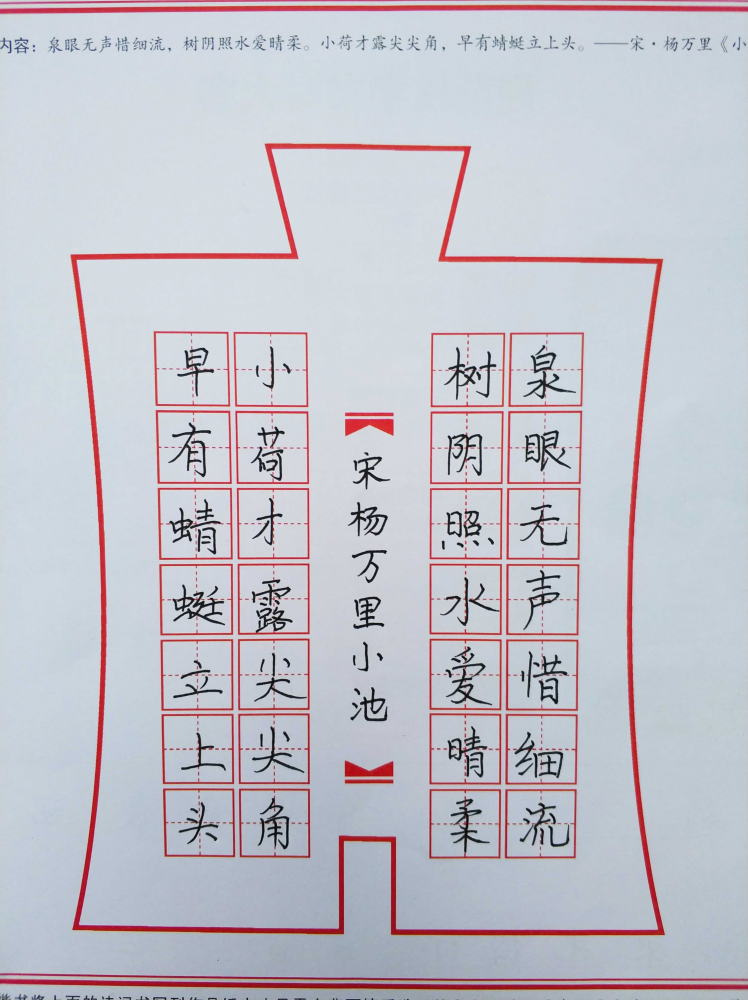 内容：泉眼无声惜细流，树阴照水爱晴柔。小荷才露尖尖角，早有蜻蜓立上头。——宋·杨万里《小
泉眼无声惜细流
树阴照水爱晴柔
宋杨万里小池
小荷才露尖尖角
早有蜻蜓立上头